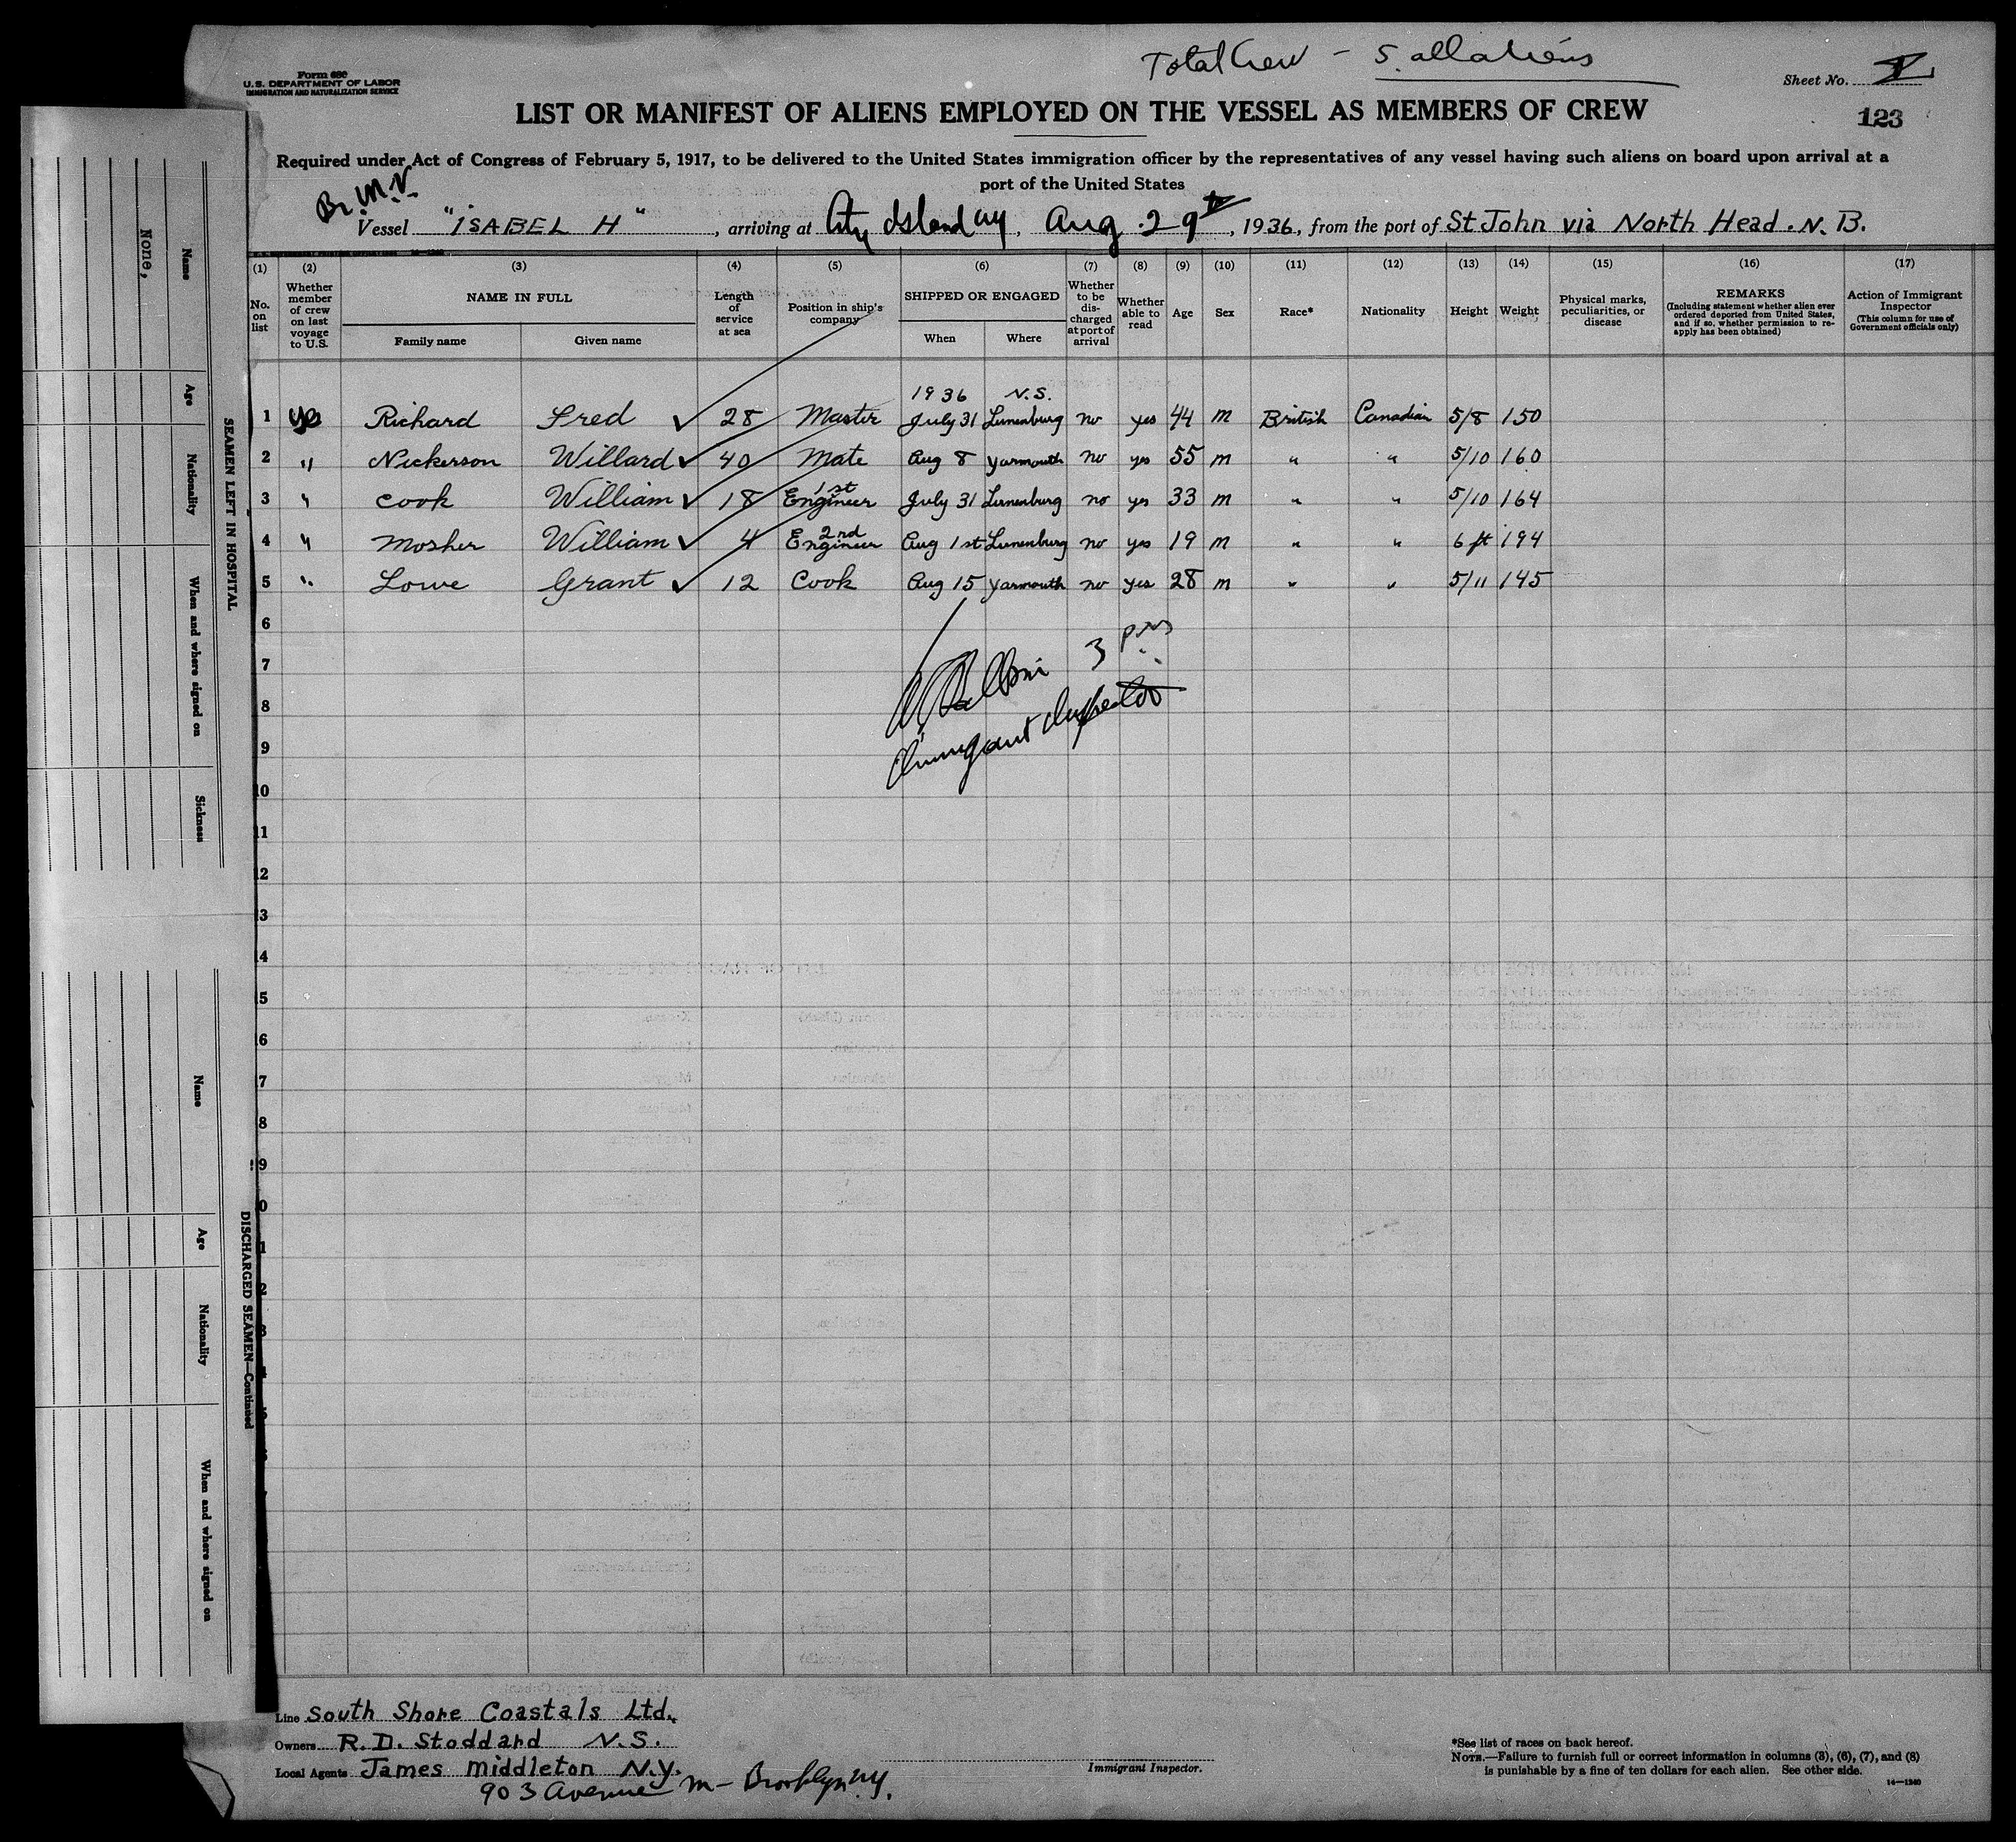 Total Crew - 5. all aliens
Form 680
U.S. DEPARTMENT OF LABOR
IMMIGRATION AND NATURALIZATION SERVICE
Sheet No.
LIST OR MANIFEST OF ALIENS EMPLOYED ON THE VESSEL AS MEMBERS OF CREW
123
Required under Act of Congress of February 5, 1917, to be delivered to the United States immigration officer by the representatives of any vessel having such aliens on board upon arrival at a
port of the United States
Br. M.V.
Vessel "ISABEL H", arriving at City Island NY, Aug. 29, 1936, from the port of St John via North Head. N. B.
(1) (2) (3) (4) (5) (6) (7) (8) (9) (10) (11) (12) (13) (14) (15) (16) (17)
No. on list
Whether member of crew on last voyage to U.S.
NAME IN FULL
Family name Given name
Length of service at sea
Position in ship's company
SHIPPED OR ENGAGED
When Where
Whether to be discharged at port of arrival
Whether able to read
Age
Sex
Race*
Nationality
Height
Weight
Physical marks, peculiarities, or disease
REMARKS
(Including statement whether alien ever ordered deported from United States, and if so, whether permission to re-apply has been obtained)
Action of Immigrant Inspector
(This column for use of Government officials only)
1936 N.S.
1 yes Richard Fred ✓ 28 Master July 31 Lunenburg no yes 44 m British Canadian 5/8 150
2 " Nickerson Willard ✓ 40 Mate Aug 8 Yarmouth no yes 55 m " " 5/10 160
3 " Cook William ✓ 18 1st Engineer July 31 Lunenburg no yes 33 m " " 5/10 164
4 " Mosher William ✓ 4 2nd Engineer Aug 1st Lunenburg no yes 19 m " " 6 ft 194
5 " Lowe Grant ✓ 12 Cook Aug 15 Yarmouth no yes 28 m " " 5/11 145
6
7
8
9
10
11
12
13
14
15
16
17
18
19
3 P.M.
Immigrant Inspector
SEAMEN LEFT IN HOSPITAL
Name
None,
Age
Nationality
When and where signed on
Sickness
DISCHARGED SEAMEN—Continued
Name
Age
Nationality
When and where signed on
Line South Shore Coastals Ltd.
Owners R.D. Stoddard N.S.
Local Agents James Middleton N.Y.
903 Avenue M - Brooklyn NY.
Immigrant Inspector.
*See list of races on back hereof.
NOTE.—Failure to furnish full or correct information in columns (3), (6), (7), and (8)
is punishable by a fine of ten dollars for each alien. See other side.
14—1240